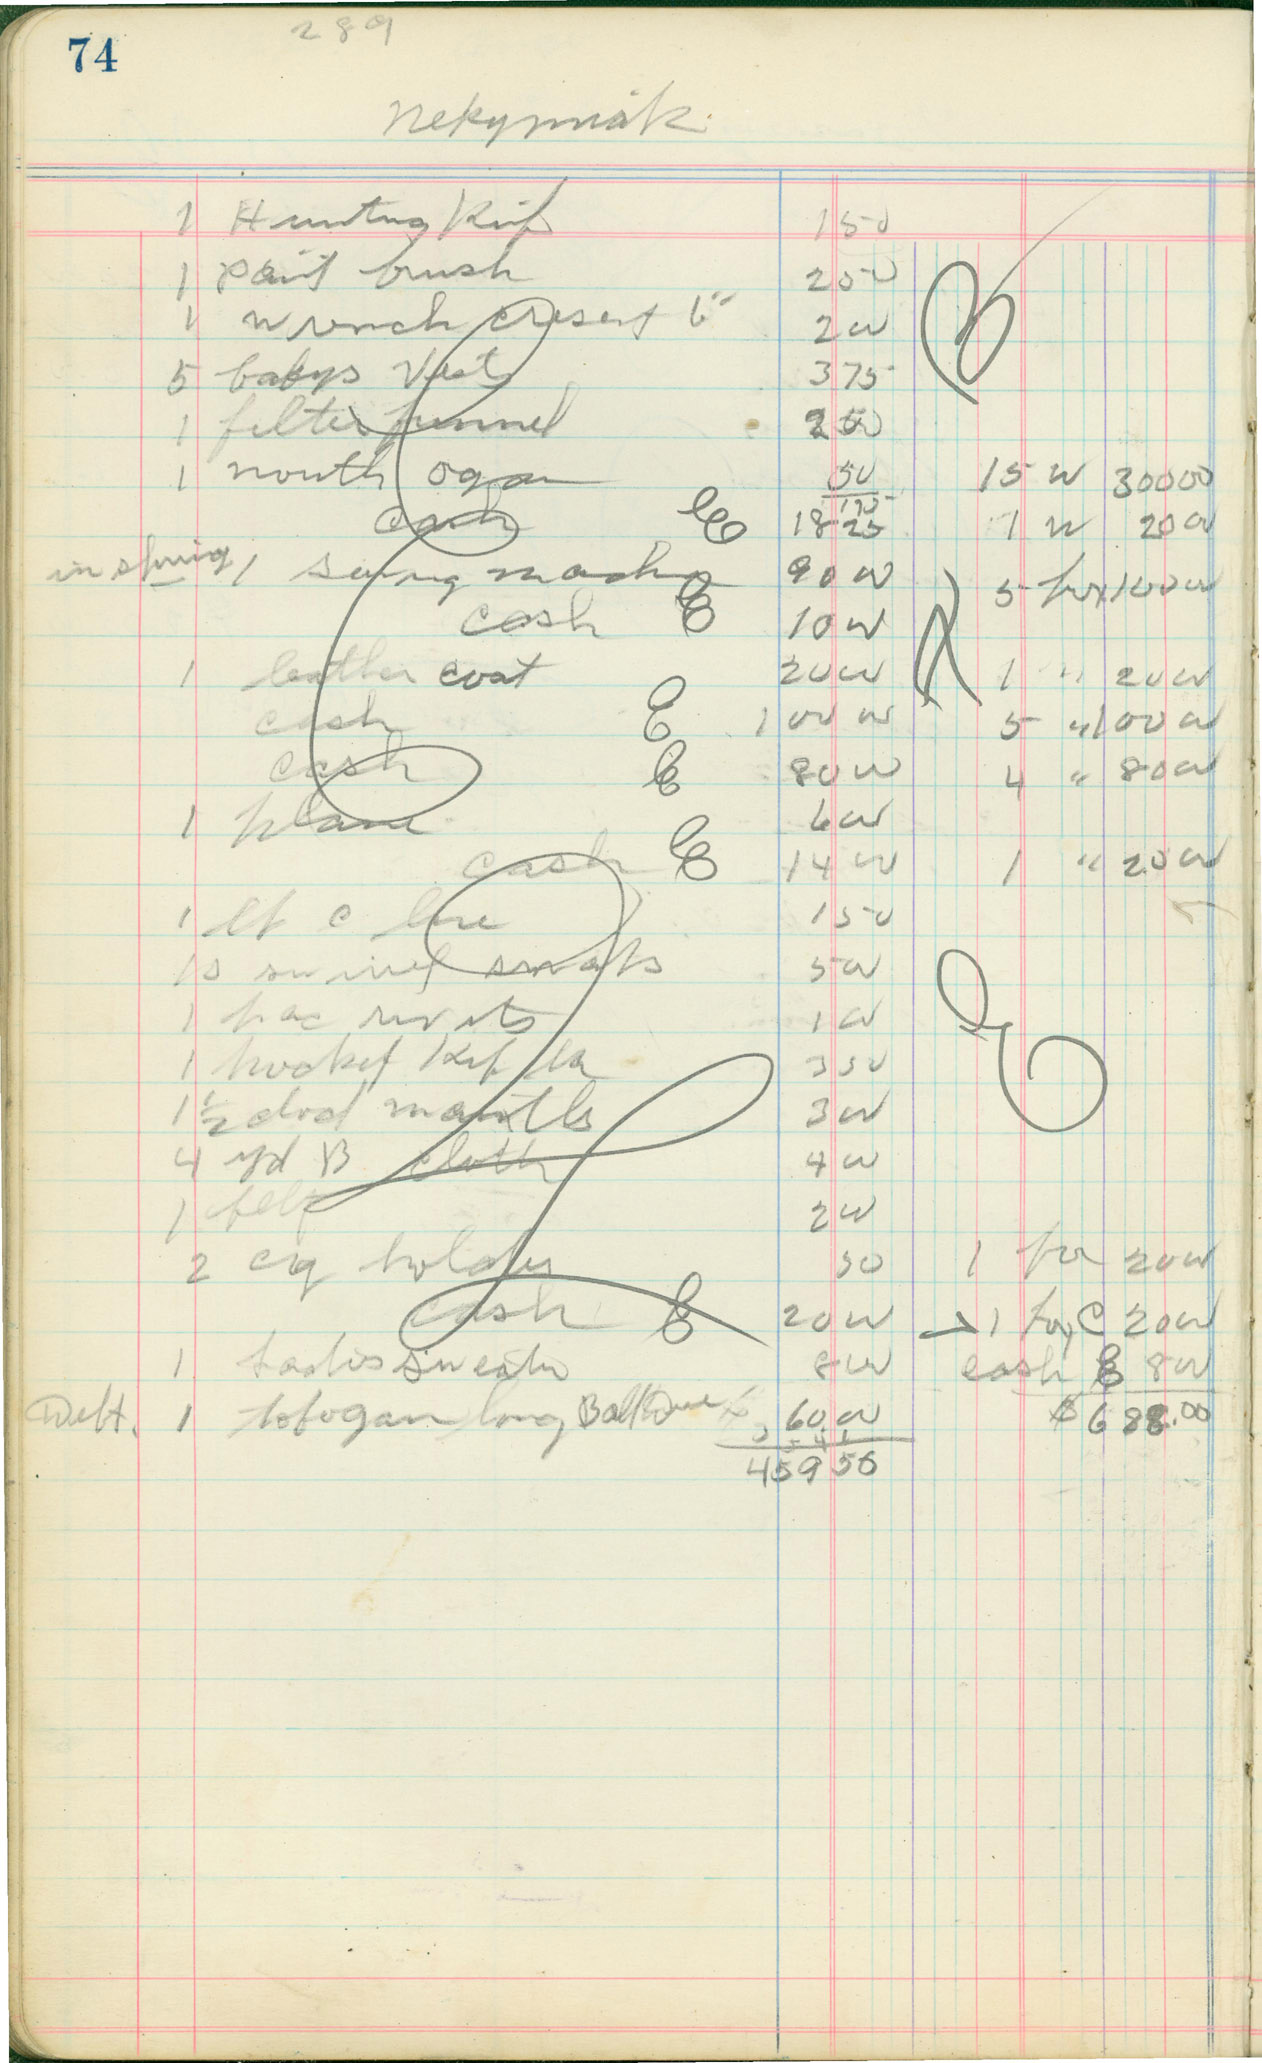 74
289
Nekynmiak.
1 Hunting Knif 150
1 pait brush 250
1 wrench cresent 6" 200
5 babys Vest 375
1 filter funnel 250
1 mouth ogan 50 15 W 30000
175
cash 1825 1 W 2000
in spring 1 sewing machin 9000 5 fox 10000
cash 1000
1 leather coat 2000 1 " 2000
cash 10000 5 " 10000
cash 8000 4 " 8000
1 plane 600
cash 1400 1 " 2000
1 lb c line 150
swivel snaps 500
1 pac rivets 100
1 pocket Knif 350
1 1/2 dod mantls 300
4 yd B cloth 400
1 felt 200
2 cig holders 50 1 fox 2000
cash 2000 1 fox C 2000
1 ladis sweater 800 cash 800
Debt. 1 tobogan long Ball Due 6000 $688.00
45950